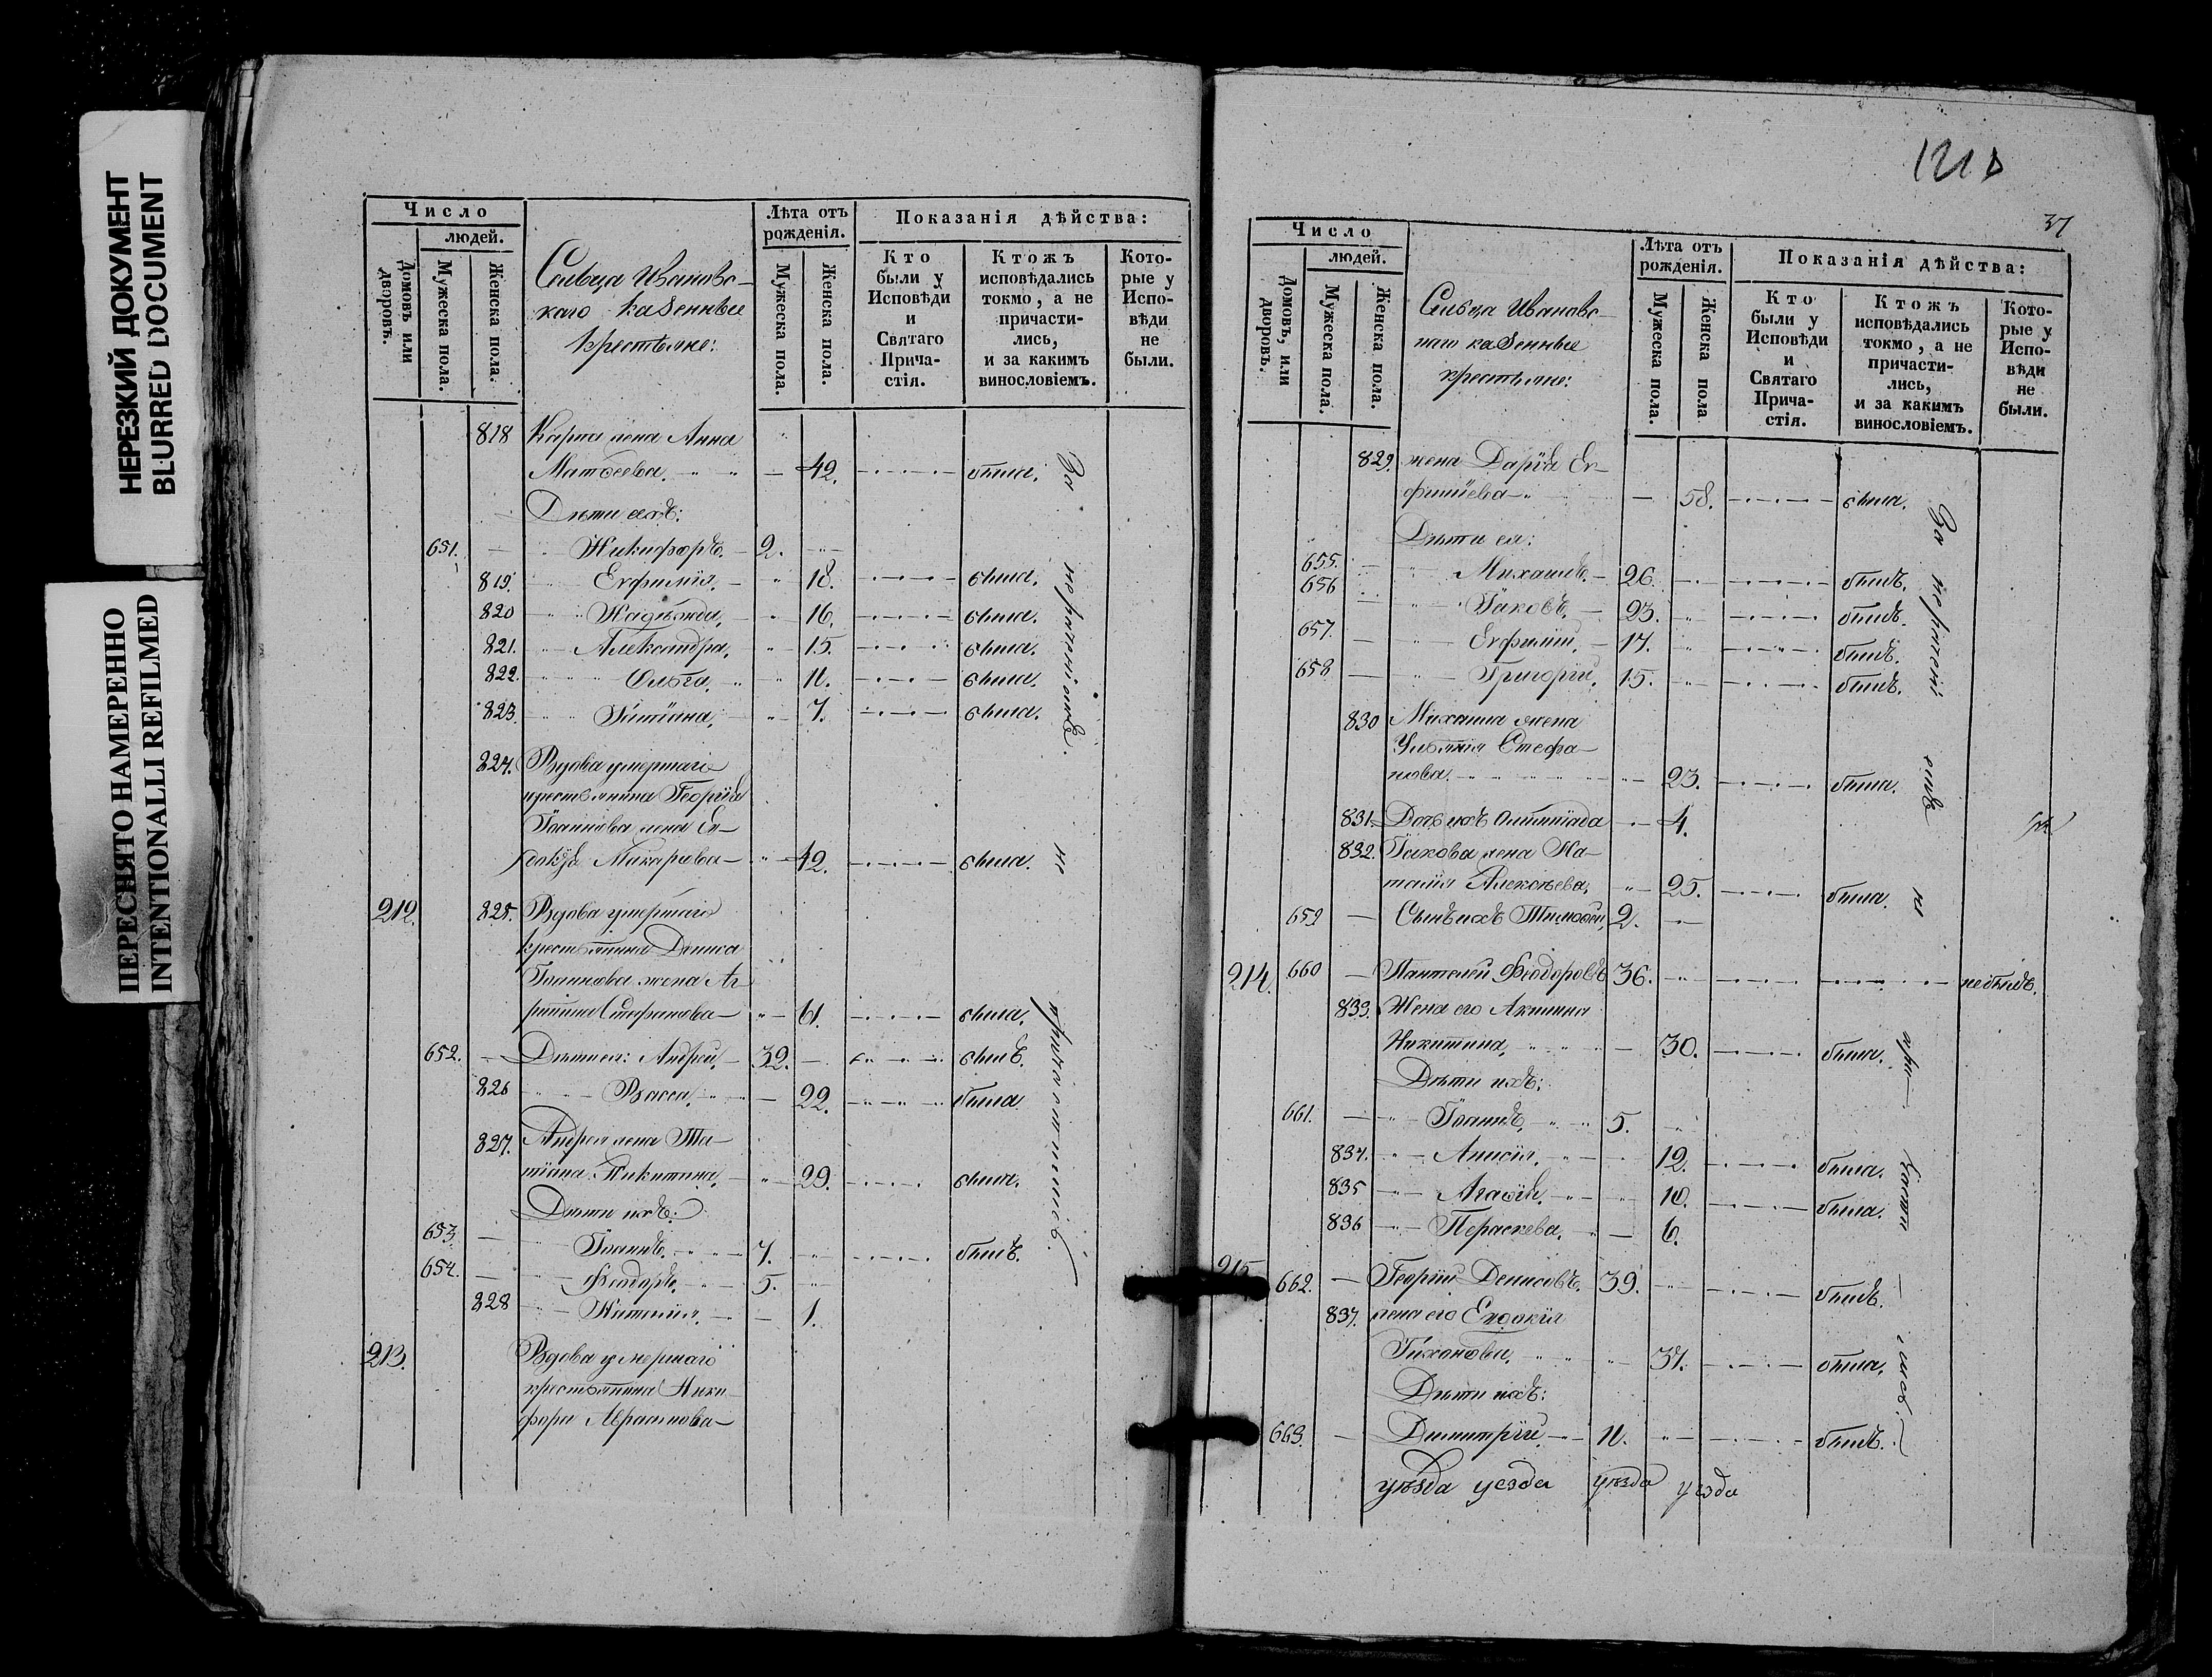 НЕРЕЗКИЙ ДОКУМЕНТ
BLURRED DOCUMENT
ПЕРЕСНЯТО НАМЕРЕННО
INTENTIONALLI REFILMED
Число
людей.
Домовъ или дворовъ.
Мужеска пола.
Женска пола.
Сельца Ивановс-
каго казенные
крестьяне:
Лѣта отъ рожденія.
Мужеска пола.
Женска пола.
Показанія дѣйства:
Кто были у Исповѣди и Святаго Прича- стія.
Ктожъ исповѣдались токмо, а не причасти- лись, и за какимъ винословіемъ.
Кото- рые у Испо- вѣди не были.
818 Карпа жена Анна
Матвеева. — 42. была.
Дѣти ихъ:
651. Никифоръ. 2.
819. Евфимія. 18. была.
820 Надежда, 16. была.
821. Александра, 15. была.
822. Ольга, 11. была.
823. Татіана, 7. была.
824. Вдова умершаго
крестьянина Георгія
Іоаннова жена Ев-
докія Макарова— 42. была.
212. 825. Вдова умершаго
крестьянина Дениса
Іоаннова жена Аг
рипина Стефанова— 61. была.
652. Дѣти ея: Андрей, 32. былъ.
826 Васса, 22. была.
827. Андрея жена Та-
тіана Никитина, 29. была.
Дѣти ихъ:
653. Іоаннъ, 7. былъ.
654. Ѳеодоръ, 5.
828 Наталия, 1.
213. Вдова умершаго
крестьянина Ники
фора Абрамова—
За нерачениемъ. не причастились.
1210
37
Число
людей.
Домовъ, или дворовъ.
Мужеска пола.
Женска пола.
Сельца Ивановс-
каго казенные
крестьяне:
Лѣта отъ рожденія.
Мужеска пола.
Женска пола
Показанія дѣйства:
Кто были у Исповѣди и Святаго Прича- стія.
Ктожъ исповѣдались токмо, а не причасти- лись, и за какимъ винословіемъ.
Кото- рые у Испо- вѣди не были.
829. жена Дарія Ев-
фимиева— 58. была.
Дѣти ея:
655. Михаилъ. 26. былъ.
656 Іаковъ, 23. былъ.
657. Евфимій, 17. былъ.
658 Григорій, 15. былъ.
830 Михаила жена
Ульянія Стефа-
нова. 23. была.
831. Дочь ихъ Олимпіада 4.
832. Іакова жена На-
талія Алексѣева, 25. была.
659 Сынъ ихъ Тимоѳей, 2.
214. 660 Пантелей Ѳеодоровъ 36. не былъ.
833. Жена его Акилина
Никитина, 30. была.
Дѣти ихъ:
661. Іоаннъ, 5.
834. Анисія, 12. была.
835 Агафія, 10. была.
836 Параскева, 6.
215 662. Георгій Денисовъ, 39. былъ.
837. жена его Евдокія
Тихонова, 37. была.
Дѣти ихъ:
663. Димитрій 11. былъ.
За нерачені емъ не при— части — лись.
уѣзда уезда уѣзда уезда